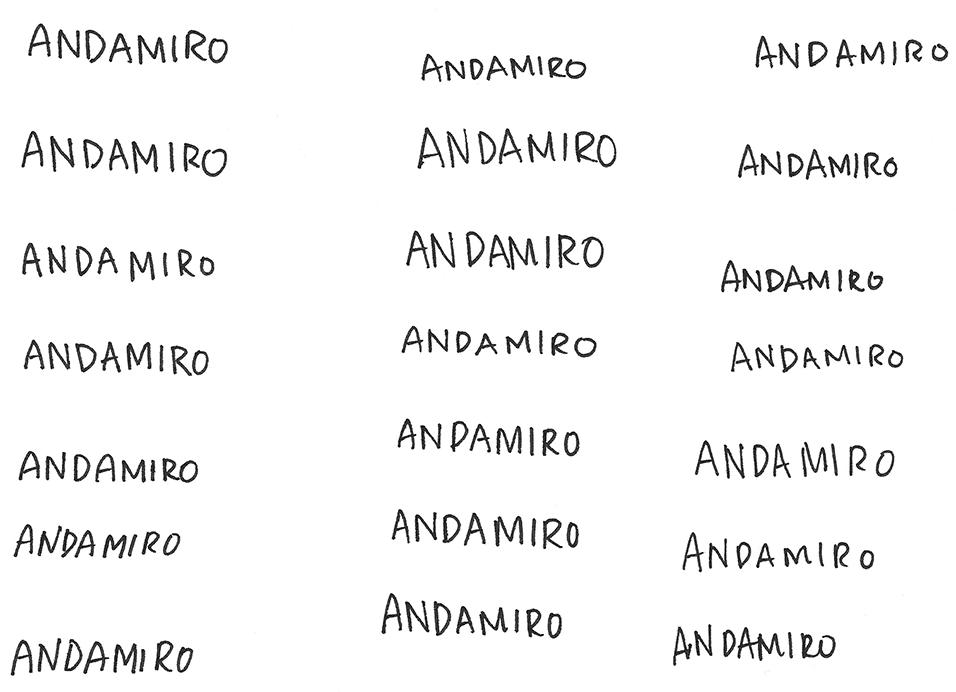 ANDAMIRO ANDAMIRO ANDAMIRO
ANDAMIRO ANDAMIRO ANDAMIRO
ANDAMIRO ANDAMIRO ANDAMIRO
ANDAMIRO ANDAMIRO ANDAMIRO
ANDAMIRO ANDAMIRO ANDAMIRO
ANDAMIRO ANDAMIRO ANDAMIRO
ANDAMIRO ANDAMIRO ANDAMIRO